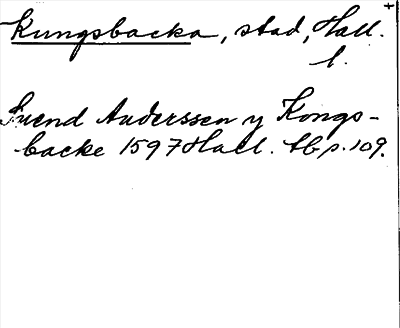 Kungsbacka, stad, Hall.
l.
Svend Anderssen y Kongs-
backe 1597 Hall. tb s. 109.